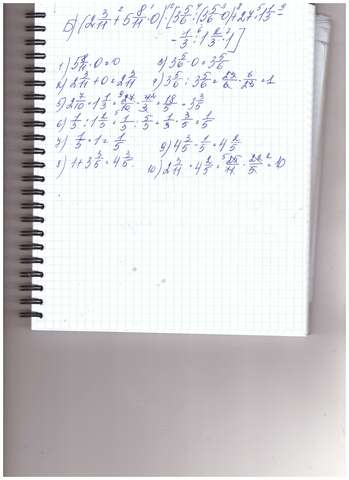 Б) (2 3/11 + 5 8/11 · 0) · [3 5/6 : (3 5/6 - 0) + 2,7 · 1 1/3 -
- 1/3 : 1 2/3 · 1)]
1) 5 8/11 · 0 = 0
2) 2 3/11 + 0 = 2 3/11
3) 3 5/6 - 0 = 3 5/6
4) 3 5/6 : 3 5/6 = 23/6 · 6/23 = 1
5) 2 7/10 · 1 1/3 = 27/10 · 4/3 = 18/5 = 3 3/5
6) 1/3 : 1 2/3 = 1/3 : 5/3 = 1/3 · 3/5 = 1/5
7) 1/5 · 1 = 1/5
8) 1 + 3 3/5 = 4 3/5
9) 4 3/5 - 1/5 = 4 2/5
10) 2 3/11 · 4 2/5 = 25/11 · 22/5 = 10